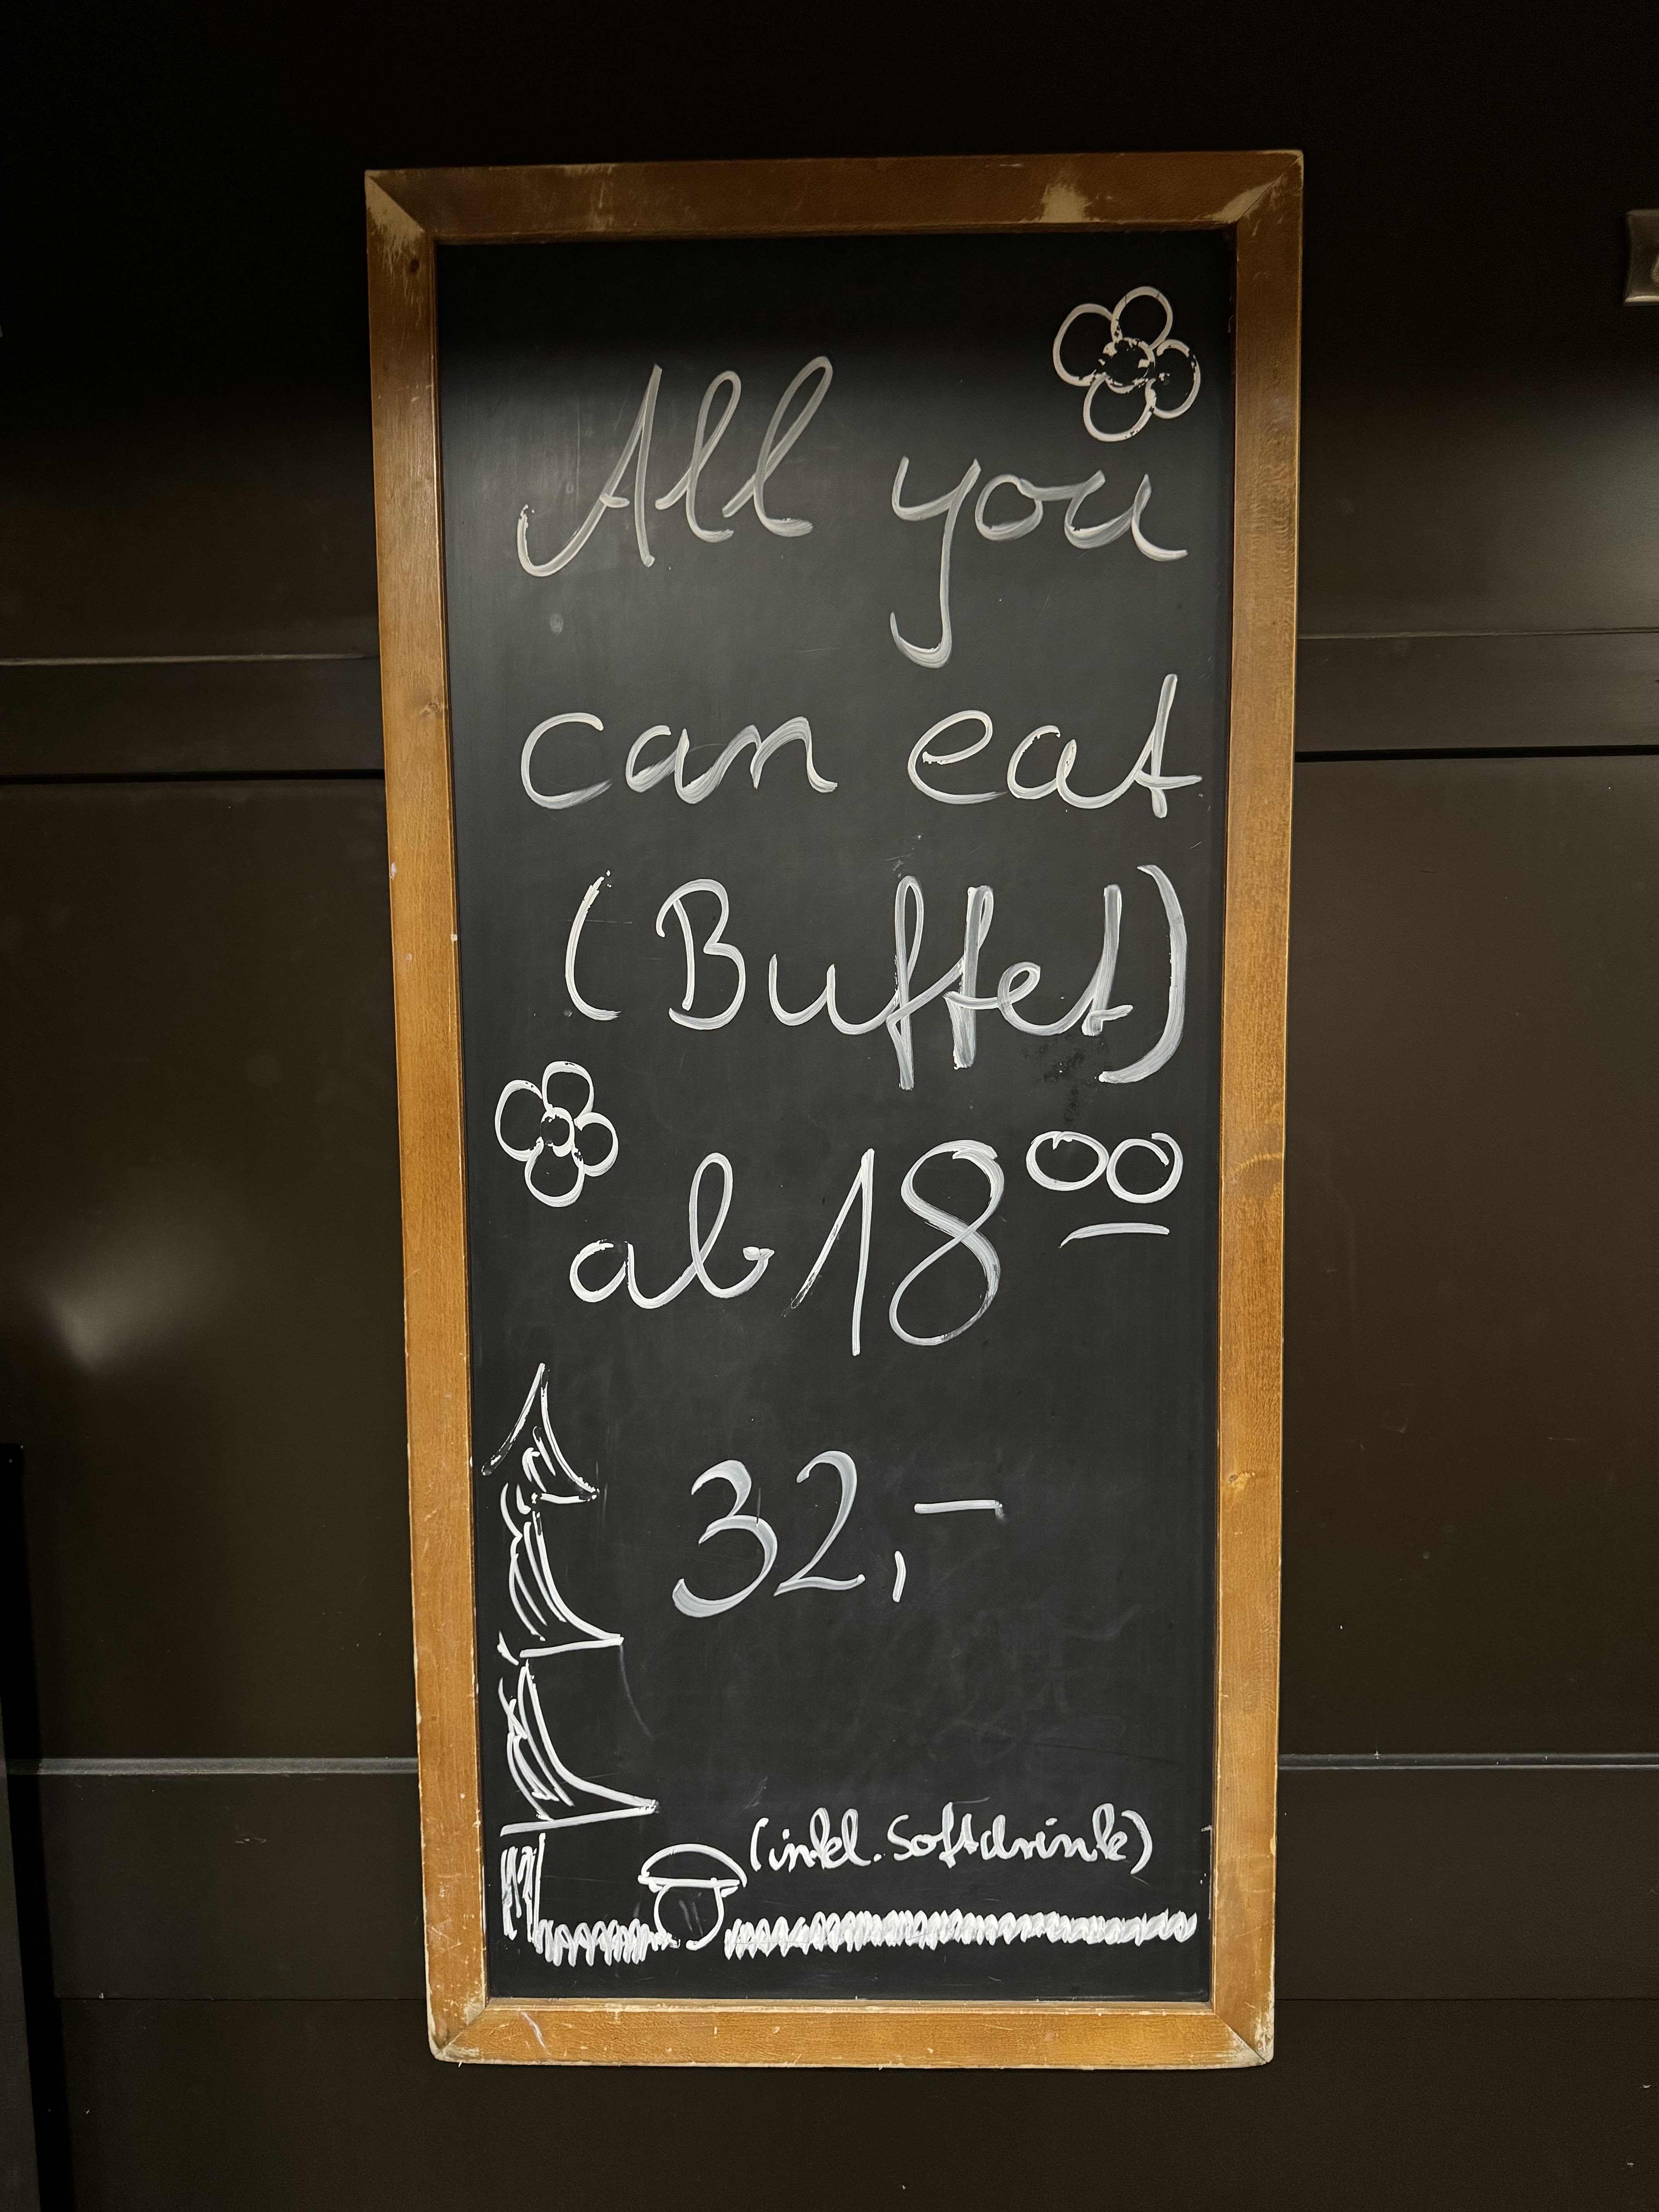 All you
can eat
(Buffet)
ab 18⁰⁰
32,-
(inkl. Softdrink)